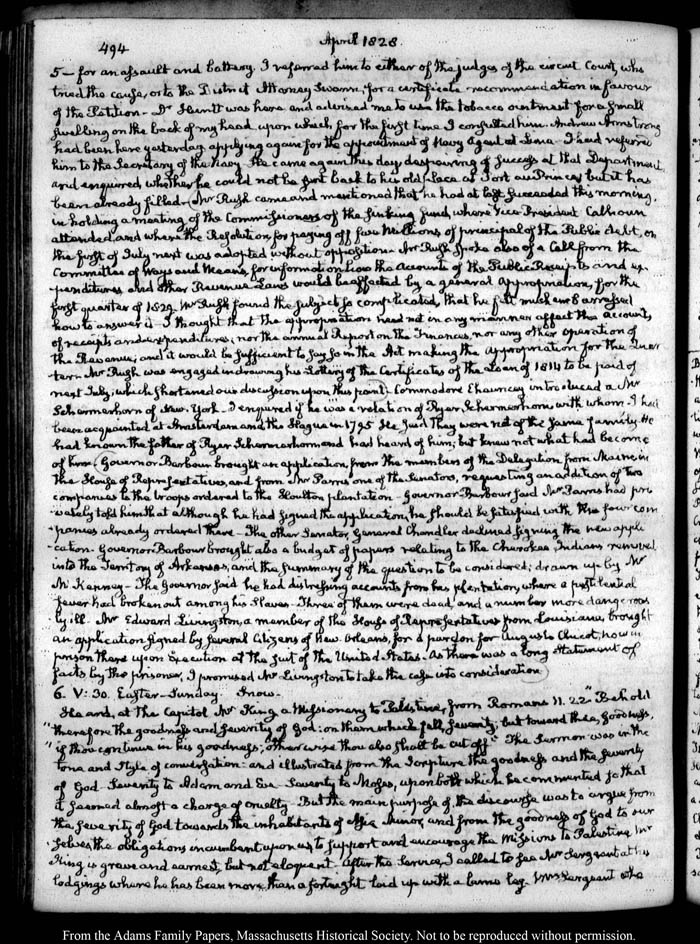 494
April 1828.
5 — for an assault and battery. I referred him to either of the judges of the circuit Court, who
tried the cause, or to the District Attorney Swann, for a certificate recommendation in favour
of the Petition — Dr Huntt was here and advised me to use the tobacco ointment for a small
swelling on the back of my head upon which for the first time I consulted him. Andrew Armstrong
had been here yesterday applying again for the appointment of Navy Agent at Lima. I had referred
him to the Secretary of the Navy. He came again this day despairing of success at that Department
and enquired whether he could not be sent back to his old place at Port au Prince; but it has
been already filled. Mr Rush came and mentioned that he had at last succeeded this morning,
in holding a meeting of the Commissioners of the sinking fund, where Vice-President Calhoun
attended, and where the Resolution for paying off five Millions of principal of the Public debt, on
the first of July next was adopted without opposition. Mr Rush spoke also of a Call from the
Committee of Ways and Means, for information how the Accounts of the Public Receipts and ex-
penditures and other Revenue Laws would be affected by a general Appropriation, for the
first quarter of 1829. Mr Rush found the subject so complicated, that he felt much embarrassed
how to answer it. I thought that the appropriation need not in any manner affect the accounts,
of receipts and expenditures; nor the annual Report on the Finances, nor any other operation of
the Revenue; and it would be sufficient to say so in the Act making the Appropriation for the Quar-
ter. Mr Rush was engaged in drawing his Lotting of the Certificates of the Loan of 1814 to be paid off
next July, which shortened our discussion upon this point. Commodore Chauncey introduced a Mr
Schermerhorn of New-York. I enquired if he was a relation of Ryer Schermerhorn, with whom I had
been acquainted at Amsterdam and the Hague in 1795. He said they were not of the same family. He
had known the father of Ryer Schermerhorn and had heard of him; but knew not what had become
of him. Governor Barbour brought an application from the members of the Delegation from Maine, in
the House of Representatives, and from Mr Parris one of the Senators, requesting an addition of two
companies to the troops ordered to the Houlton plantation. Governor Barbour said Mr Parris had pri-
vately told him that although he had signed the application, he should be satisfied with the four com-
panies already ordered there — The other Senator, General Chandler declined signing the new appli-
cation. Governor Barbour brought also a budget of papers relating to the Cherokee Indians removed
into the Territory of Arkansas; and the summary of the question to be considered; drawn up by Mr
McKenney — The Governor said he had distressing accounts from his plantation, where a pestilential
fever had broken out among his Slaves. Three of them were dead, and a number more dangerous-
ly ill. Mr Edward Livingston, a member of the House of Representatives from Louisiana, brought
an application signed by several Citizens of New Orleans, for a pardon for Auguste Chicot, now in
prison there upon Execution at the suit of the United States. As there was a long statement of
facts by the prisoner, I promised Mr Livingston to take the case into consideration.
6. V: 30. Easter-Sunday. Snow.
Heard, at the Capitol Mr King a Missionary to Palestine, from Romans 11. 22 "Behold
"therefore the goodness and severity of God: on them which fell, severity; but toward thee, goodness,
"if thou continue in his goodness; otherwise thou also shalt be cut off." The Sermon was in the
tone and style of conversation: and illustrated from the Scripture the goodness and the severity
of God. Severity to Adam and Eve. Severity to Moses, upon both which he commented so that
it seemed almost a charge of cruelty. But the main purpose of the discourse was to argue from
the severity of God towards the inhabitants of Asia Minor, and from the goodness of God to our
selves, the obligations incumbent upon us to support and encourage the Missions to Palestine. Mr
King is grave and earnest, but not eloquent. After the service, I called to see Mr Sergeant at his
lodgings where he has been more than a fortnight laid up with a lame leg. Mrs Sergeant
From the Adams Family Papers, Massachusetts Historical Society. Not to be reproduced without permission.